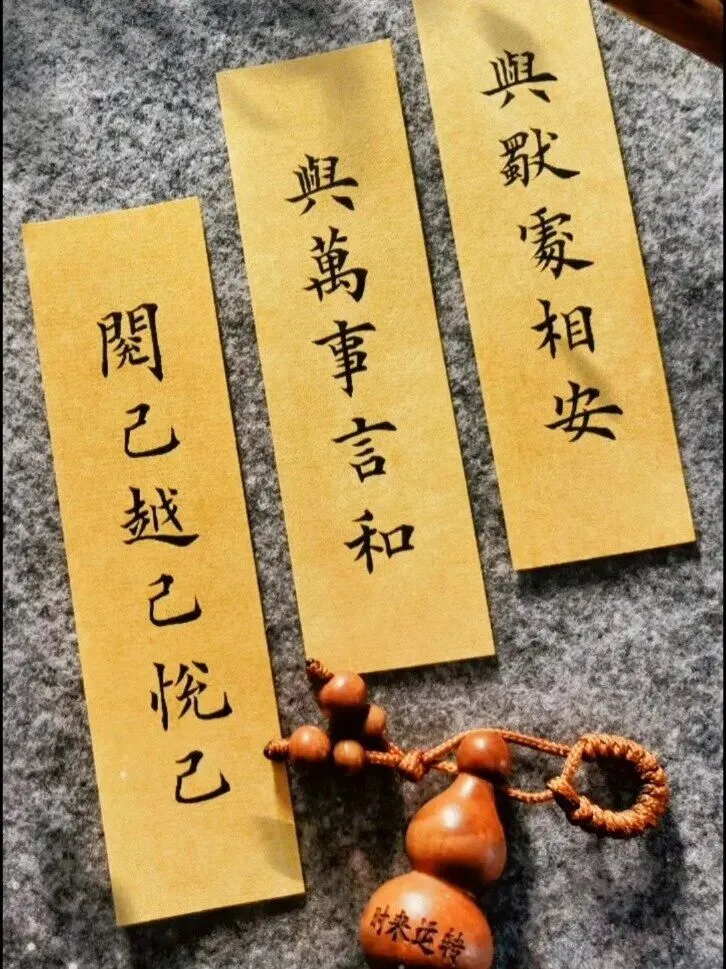 與獨處相安
與萬事言和
閱己越己悅己
时来运转